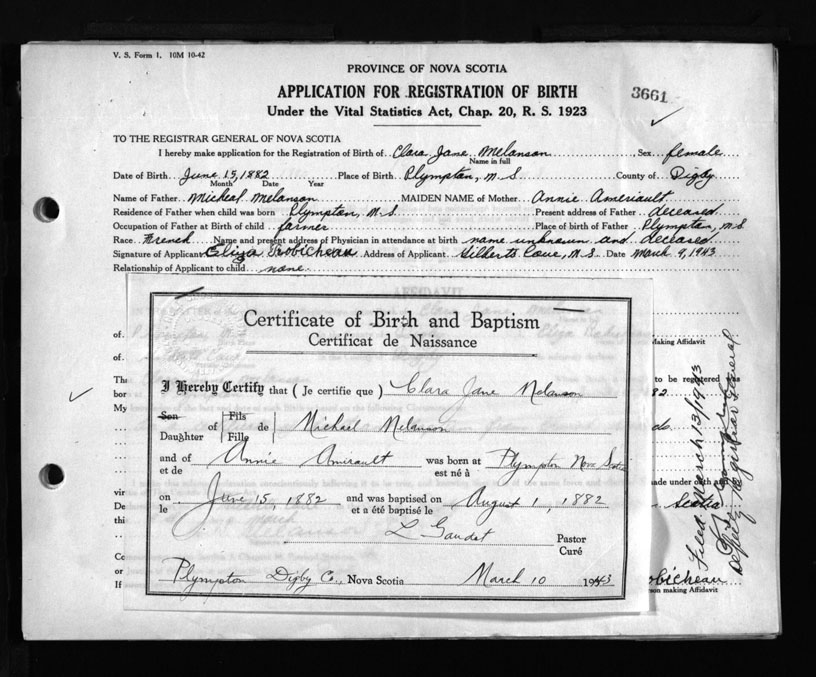 V. S. Form 1. 10M 10-42
PROVINCE OF NOVA SCOTIA
APPLICATION FOR REGISTRATION OF BIRTH
3661
Under the Vital Statistics Act, Chap. 20, R. S. 1923
TO THE REGISTRAR GENERAL OF NOVA SCOTIA
I hereby make application for the Registration of Birth of Clara Jane Melanson Sex female
Name in full
Date of Birth June 15, 1882 Place of Birth Plympton, N.S County of Digby
Month Date Year
Name of Father Micheal Melanson MAIDEN NAME of Mother Annie Ameriault
Residence of Father when child was born Plympton, N.S. Present address of Father deceased
Occupation of Father at Birth of child farmer Place of birth of Father Plympton, N.S
Race French Name and present address of Physician in attendance at birth name unknown and deceased
Signature of Applicant Eliza Robicheau Address of Applicant Gilberts Cove, N.S. Date March 9, 1943
Relationship of Applicant to child none.
Certificate of Birth and Baptism
Certificat de Naissance
I Hereby Certify that ( Je certifie que ) Clara Jane Melanson
Son Fils
of de Michael Melanson
Daughter Fille
and of Annie Amirault was born at Plympton Nova Scotia
et de est né à
on June 15, 1882 and was baptised on August 1, 1882
le et a été baptisé le
L Gaudet Pastor
Curé
Plympton Digby Co., Nova Scotia March 10 1943
of.
of.
bor
My
vir
De
thi
or
If
Making Affidavit
to be registered
82
made under oath and
Scotia
Robicheau
son making Affidavit
Filed March 13/1943
Deputy Registrar General